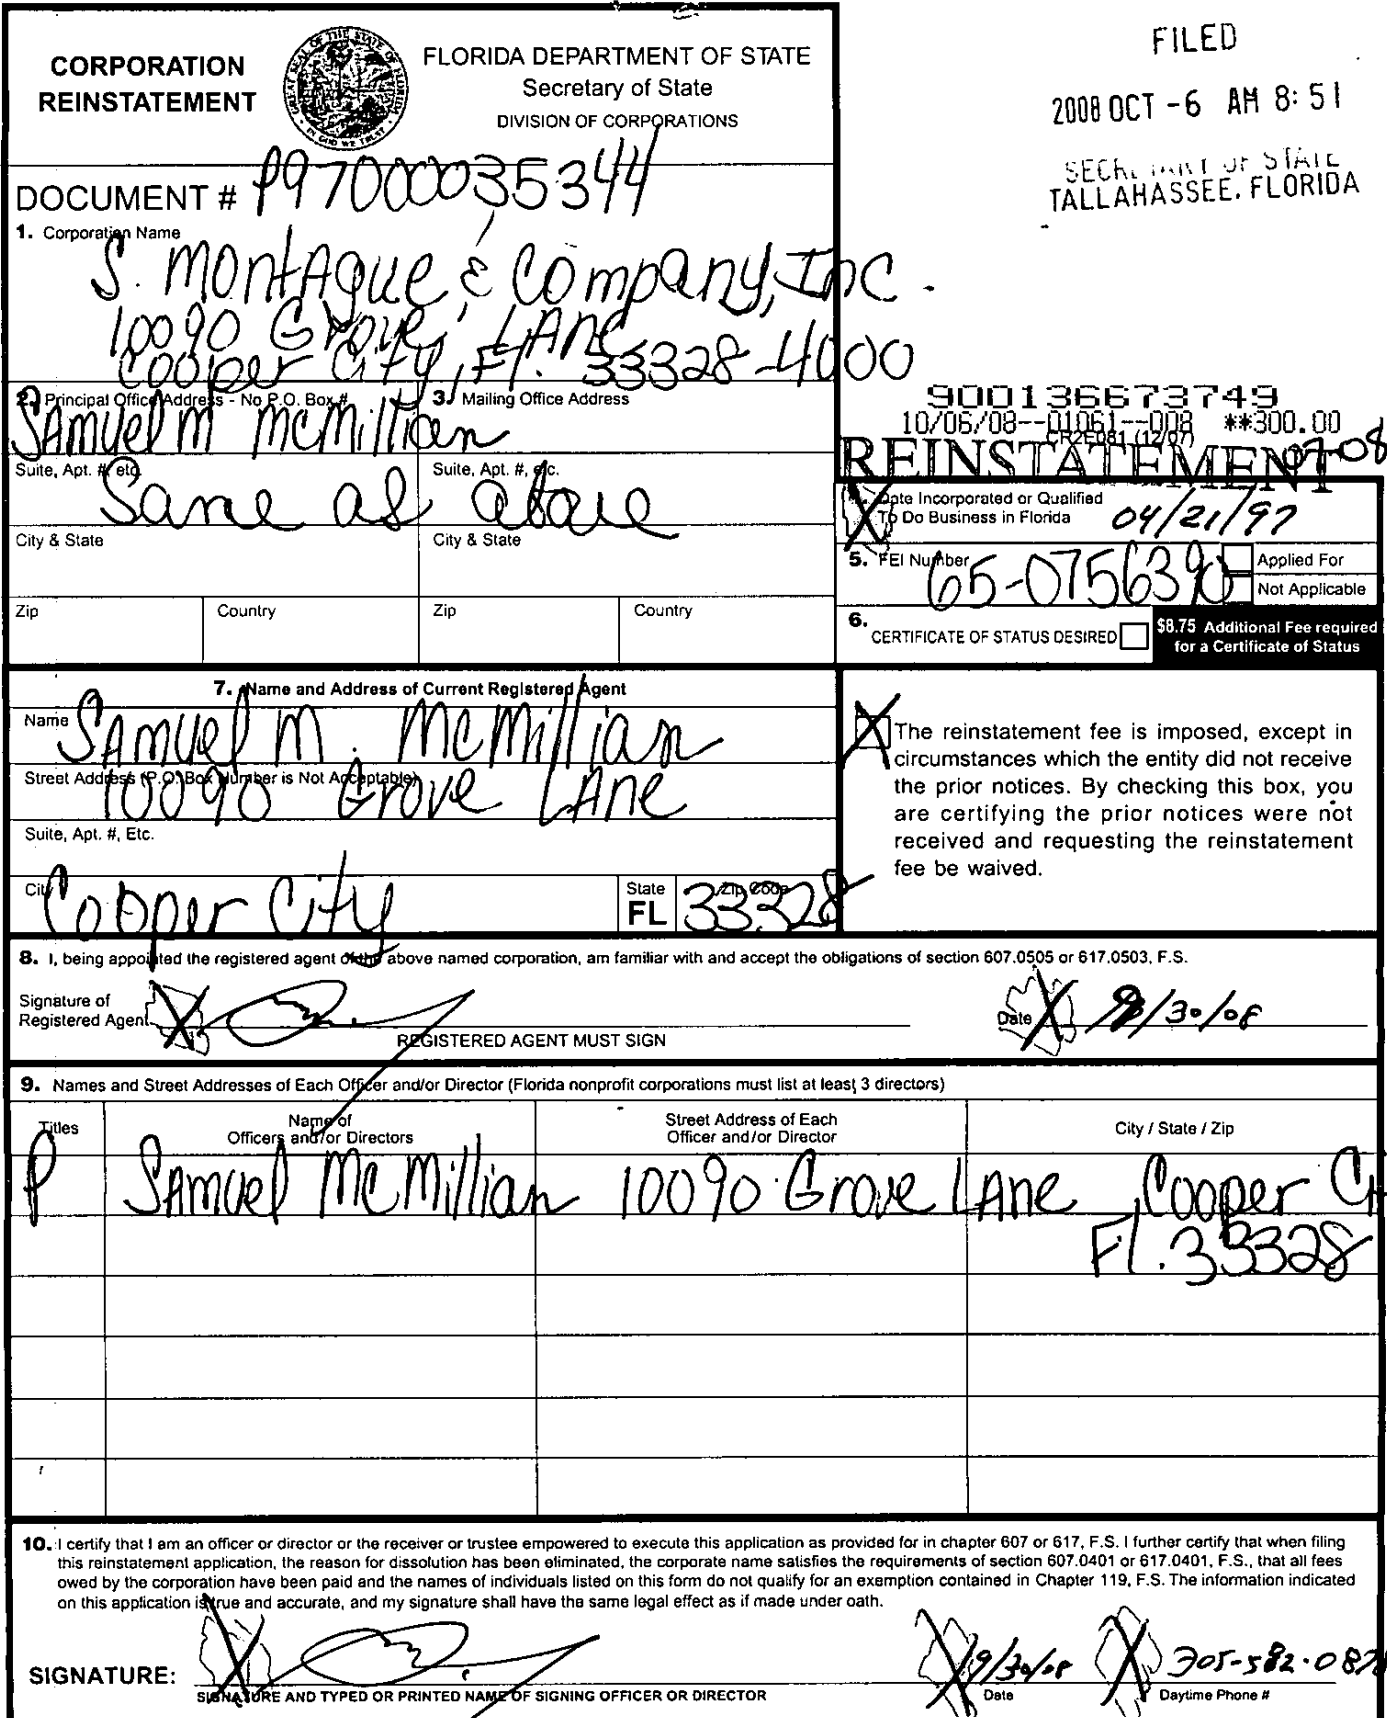 CORPORATION
REINSTATEMENT
FLORIDA DEPARTMENT OF STATE
Secretary of State
DIVISION OF CORPORATIONS
FILED
2008 OCT -6 AM 8:51
SECRETARY OF STATE
TALLAHASSEE, FLORIDA
DOCUMENT # P97000035344
1. Corporation Name
S. Montague & Company, Inc.
10090 Grove Lane
Cooper City, Fl. 33328-4000
900136673749
10/06/08--01061--008 **300.00
CR2E081 (12/07)
REINSTATEMENT 07-08
2. Principal Office Address - No P.O. Box #
3. Mailing Office Address
Samuel M McMillian
Suite, Apt. #, etc.
Suite, Apt. #, etc.
Same as above
City & State
City & State
Zip
Country
Zip
Country
Date Incorporated or Qualified
To Do Business in Florida 04/21/97
5. FEI Number 65-0756390
Applied For
Not Applicable
6. CERTIFICATE OF STATUS DESIRED
$8.75 Additional Fee required
for a Certificate of Status
7. Name and Address of Current Registered Agent
Name Samuel M. McMillian
Street Address (P.O. Box Number is Not Acceptable)
10090 Grove Lane
Suite, Apt. #, Etc.
City Cooper City
State
FL
Zip Code
33328
The reinstatement fee is imposed, except in
circumstances which the entity did not receive
the prior notices. By checking this box, you
are certifying the prior notices were not
received and requesting the reinstatement
fee be waived.
8. I, being appointed the registered agent of the above named corporation, am familiar with and accept the obligations of section 607.0505 or 617.0503, F.S.
Signature of
Registered Agent
REGISTERED AGENT MUST SIGN
Date 9/30/08
9. Names and Street Addresses of Each Officer and/or Director (Florida nonprofit corporations must list at least 3 directors)
Titles
Name of
Officers and/or Directors
Street Address of Each
Officer and/or Director
City / State / Zip
P Samuel McMillian 10090 Grove Lane, Cooper
Fl. 33328
10. I certify that I am an officer or director or the receiver or trustee empowered to execute this application as provided for in chapter 607 or 617, F.S. I further certify that when filing
this reinstatement application, the reason for dissolution has been eliminated, the corporate name satisfies the requirements of section 607.0401 or 617.0401, F.S., that all fees
owed by the corporation have been paid and the names of individuals listed on this form do not qualify for an exemption contained in Chapter 119, F.S. The information indicated
on this application is true and accurate, and my signature shall have the same legal effect as if made under oath.
SIGNATURE:
SIGNATURE AND TYPED OR PRINTED NAME OF SIGNING OFFICER OR DIRECTOR
9/30/08
Date
305-582-087
Daytime Phone #